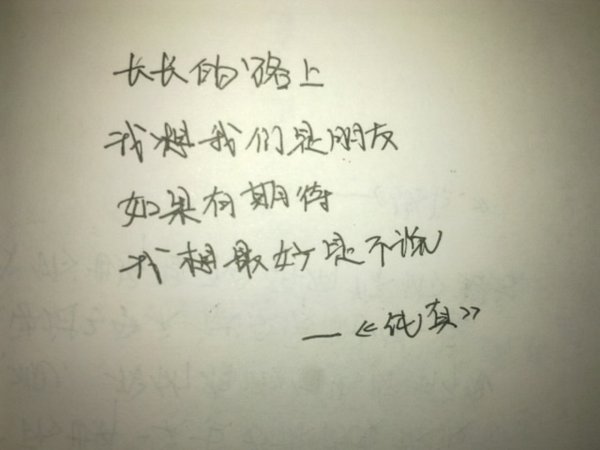 长长的路上
我想我们是朋友
如果有期待
我想最好是不说
—《纯真》